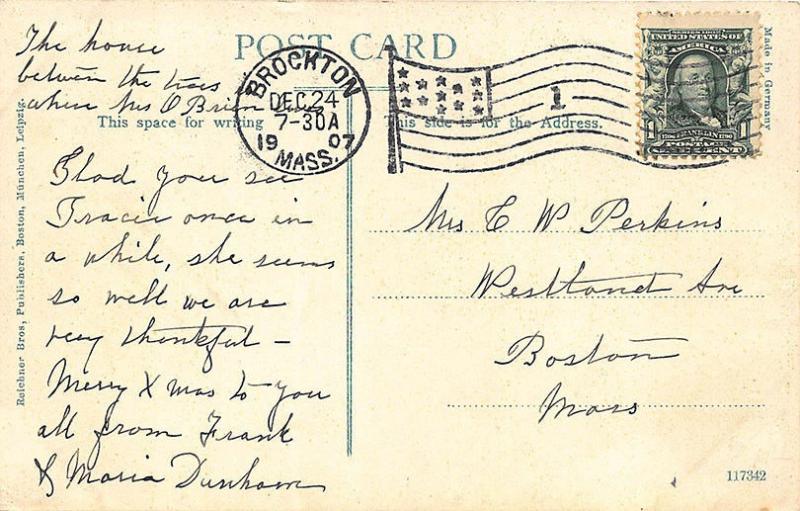 POST CARD
The house
between the trees
where Mrs O Brien
This space for writing
This side is for the Address.
BROCKTON
DEC 24
7-30A
19 07
MASS.
1
SERIES 1902
UNITED STATES OF
AMERICA
FRANKLIN
POSTAGE
Made in Germany
Glad you see
Tracie once in
a while, she seems
so well we are
very thankful -
Merry X mas to you
all from Frank
& Maria Dunham
Mrs C W Perkins
Westland Ave
Boston
Mass
Reichner Bros, Publishers, Boston, München, Leipzig.
117342